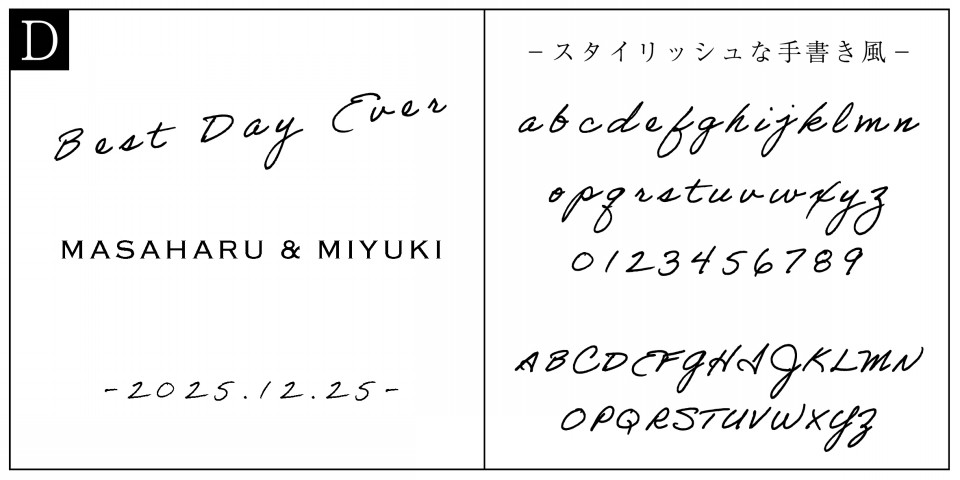 D
Best Day Ever
MASAHARU & MIYUKI
-2025.12.25-
−スタイリッシュな手書き風−
abcdefghijklmn
opqrstuvwxyz
0123456789
ABCDEFGHIJKLMN
OPQRSTUVWXYZ